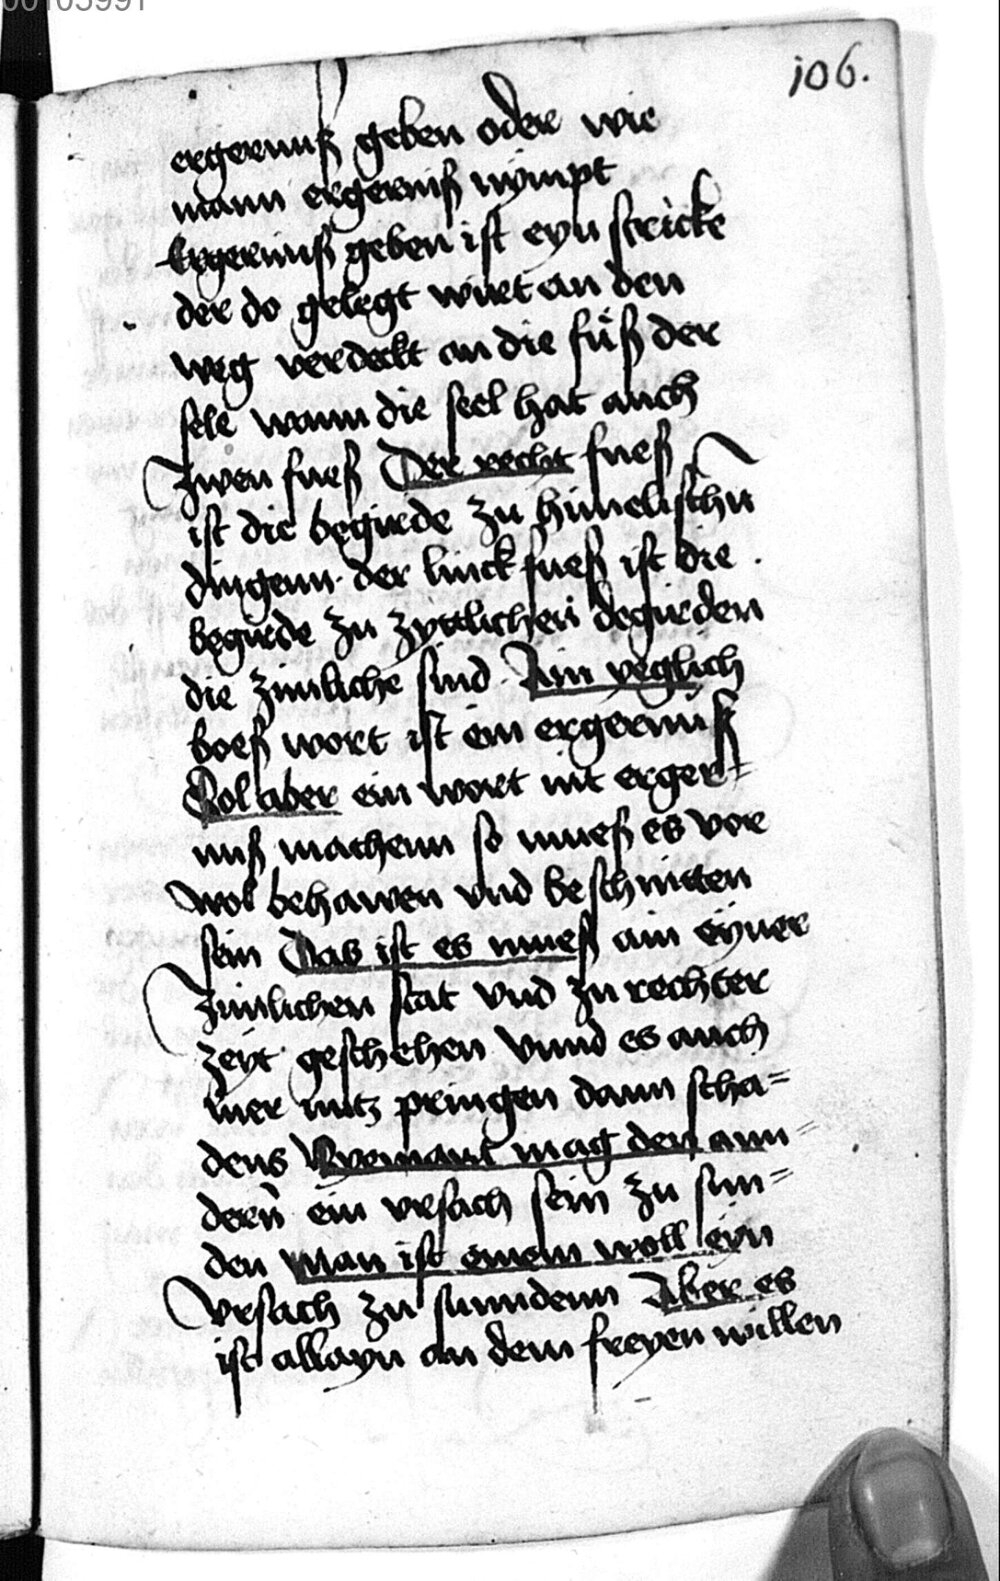 00103991
106.
ergernuß geben oder wie
mann ergerniß nÿmpt
Ergernuß geben ist eyn stricke
der do gelegt wirt an den
weg verdeckt an die füß der
sele wann die seel hat auch
zwen fueß Der recht fueß
ist die begirde zu himelischn
dingenn. der linck fueß ist die
begirde zu zyttlichen begirden
die zimliche sind. Ain yeglich
boeß wort ist ein ergernuß
Sol aber ein wort nit erger=
nuß machenn so mueß es vor
wol behawen vnd beschnitten
sein Das ist es mueß ain eÿner
zimlichen stat vnd zu rechter
zeyt geschehen vnnd es auch
mer nutz pringen dann scha=
dens Nyemant mag den ann=
dern ein vrsach sein zu sun=
den Man ist einem woll eyn
vrsach zu sunndenn Aber es
ist allayn an dem freyen willen